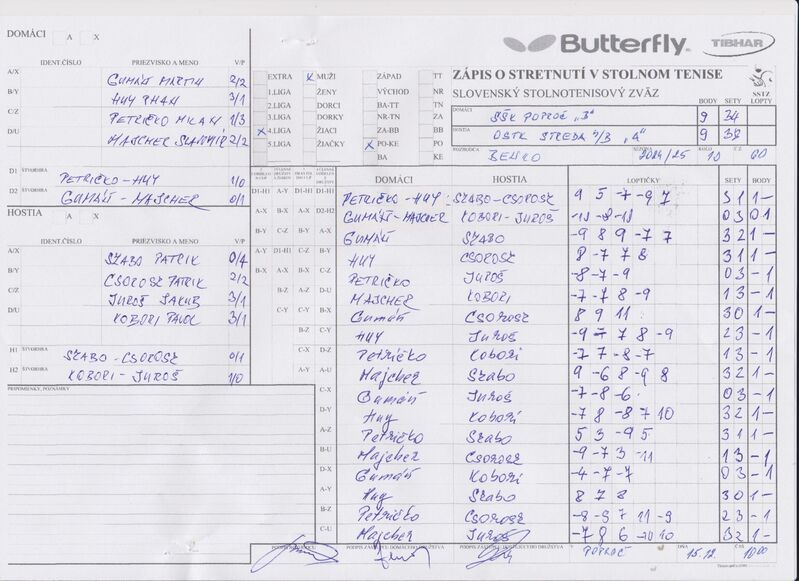 Butterfly
TIBHAR
ZÁPIS O STRETNUTÍ V STOLNOM TENISE
SLOVENSKÝ STOLNOTENISOVÝ ZVÄZ
SSTZ
BODY SETY LOPTY
DOMÁCI ŠŠK POPROČ "B" 9 34
HOSTIA OSTK STREDA n/B "A" 9 38
ROZHODCA BENKO SEZÓNA 2024/25 KOLO 10 Č.Z. 60
DOMÁCI A X
IDENT.ČÍSLO PRIEZVISKO A MENO V/P
A/X GUMÁŇ MARTIN 2/2
B/Y HUY PHAN 3/1
C/Z PETRIČKO MILAN 1/3
D/U MAJCHER SLAVOMÍR 2/2
D1 ŠTVORHRA PETRIČKO - HUY 1/0
D2 ŠTVORHRA GUMÁŇ - MAJCHER 0/1
HOSTIA A X
IDENT.ČÍSLO PRIEZVISKO A MENO V/P
A/X SZABO PATRIK 0/4
B/Y CSOROSZ PATRIK 2/2
C/Z JUROŠ JAKUB 3/1
D/U KOBORI PAVOL 3/1
H1 ŠTVORHRA SZABO - CSOROSZ 0/1
H2 ŠTVORHRA KOBORI - JUROŠ 1/0
PRIPOMIENKY, POZNÁMKY
EXTRA x MUŽI ZÁPAD TT
1.LIGA ŽENY VÝCHOD NR
2.LIGA DORCI BA-TT TN
3.LIGA DORKY NR-TN ZA
x 4.LIGA ŽIACI ZA-BB BB
5.LIGA ŽIAČKY x PO-KE PO
BA KE
DOMÁCI HOSTIA LOPTIČKY SETY BODY
D1-H1 A-Y D1-H1 D1-H1 PETRIČKO - HUY SZABO - CSOROSZ 9 5 -7 -9 7 3 1 1 -
A-X B-X A-X D2-H2 GUMÁŇ - MAJCHER KOBORI - JUROŠ -11 -8 -11 0 3 0 1
B-Y C-Z B-Y A-X GUMÁŇ SZABO -9 8 9 -7 7 3 2 1 -
A-Y D1-H1 C-Z B-Y HUY CSOROSZ 8 -7 7 8 3 1 1 -
B-X A-X B-X C-Z PETRIČKO JUROŠ -8 -7 -9 0 3 - 1
B-Z A-Z D-U MAJCHER KOBORI -7 -7 8 -9 1 3 - 1
C-Y C-Y B-X Gumáň Csorosz 8 9 11 3 0 1 -
B-Z C-Y Huy Juroš -9 -7 7 8 -9 2 3 - 1
C-X D-Z Petričko Kobori -7 7 -8 -7 1 3 - 1
A-Y A-U Majcher Szabo 9 -6 8 -9 8 3 2 1 -
C-X Gumáň Juroš -7 -8 -6 0 3 - 1
D-Y Huy Kobori -7 8 -8 7 10 3 2 1 -
A-Z Petričko Szabo 5 3 -9 5 3 1 1 -
B-U Majcher Csorosz -9 -7 3 -11 1 3 - 1
D-X Gumáň Kobori -4 -7 -7 0 3 - 1
A-Y Huy Szabo 8 7 8 3 0 1 -
B-Z Petričko Csorosz 2 3 - 1
C-U Majcher Juroš -7 8 6 -10 10 3 2 1 -
PODPIS ZÁSTUPCU DOMÁCEHO DRUŽSTVA V POPROČ DŇA 15.12. ČAS 10:00